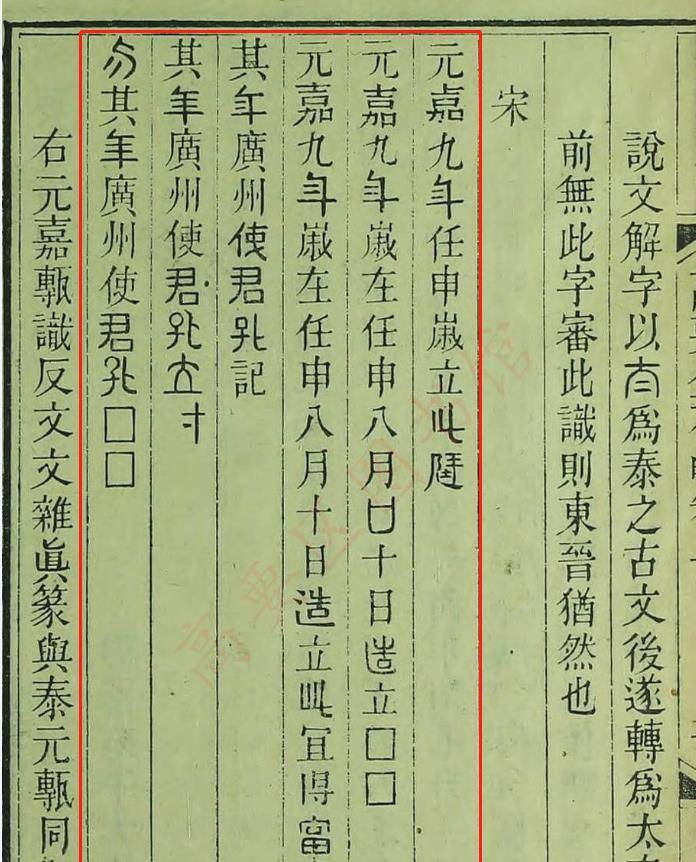 說文解字以夳爲泰之古文後遂轉爲太
前無此字審此識則東晉猶然也
宋
元嘉九年任申嵗立此
元嘉九年嵗在任申八月十日造立□□
元嘉九年嵗在任申八月十日造立此冝得富
其年廣州使君孔記
其年廣州使君孔立寸
其年廣州使君孔□□
右元嘉甎識反文文雜眞篆與泰元甎同